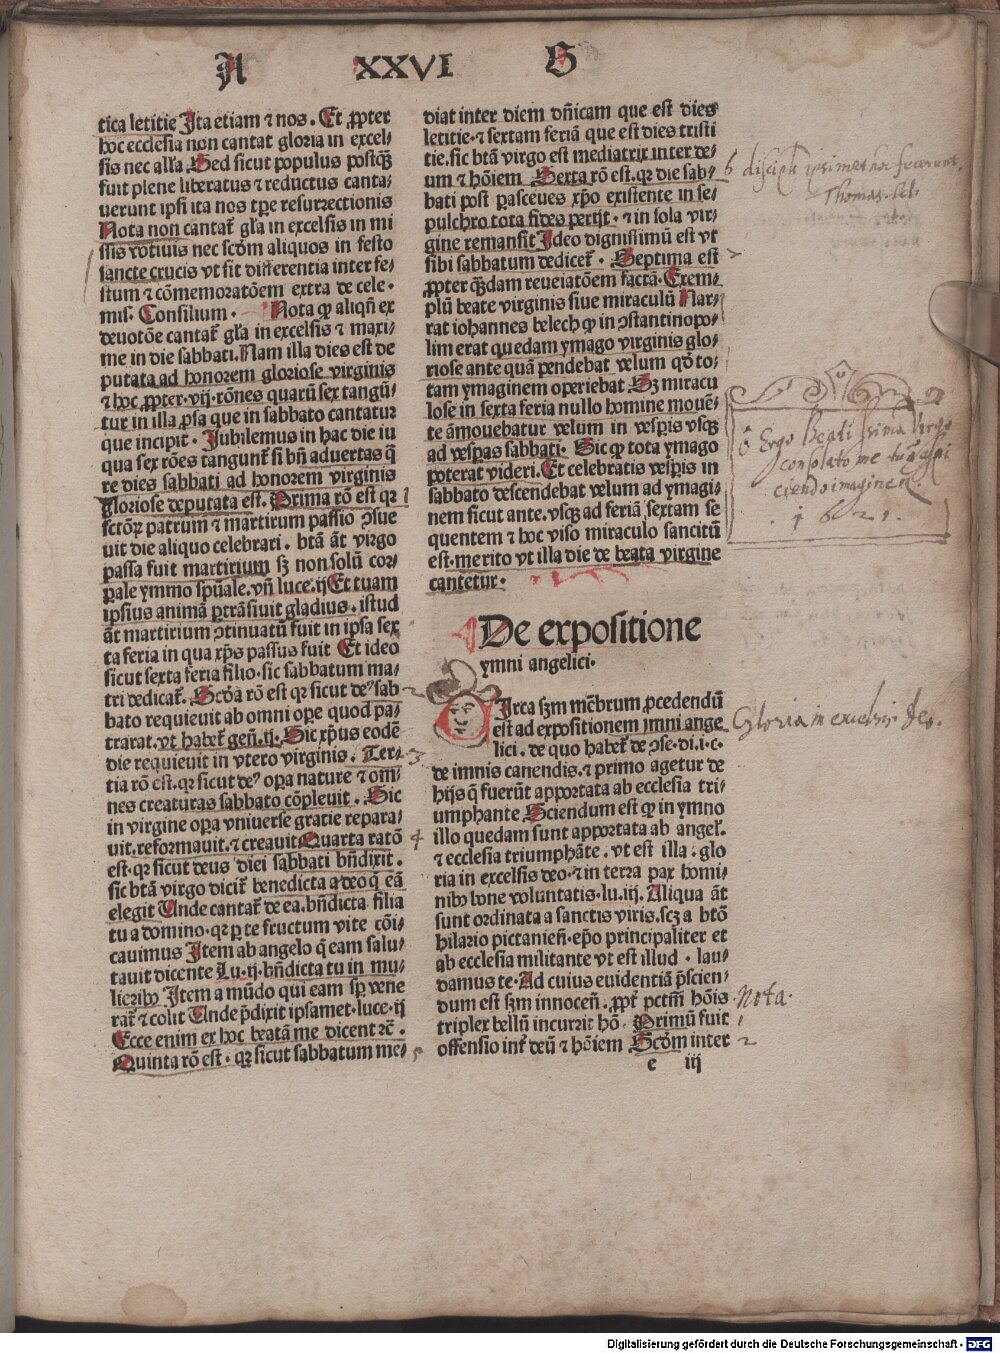 A XXVI G
tica letitie Ita etiam ⁊ nos. Et ꝓpter
hoc ecclesia non cantat gloria in excel⸗
sis nec alľa. Sed sicut populus postq̃ꝫ
fuit plene liberatus ⁊ reductus canta⸗
uerunt ipsi ita nos tp̄e resurrectionis
Nota non cantat᷑ gľa in excelsis in mi
ssis votiuis nec scďm aliquos in festo
sancte crucis vt sit differentia inter fe⸗
stum ⁊ cōmemoratōem extra de cele⸗
mis. Consilium. Nota ꝙ aliqñ ex
deuotōe cantat᷑ gľa in excelsis ⁊ maxi⸗
me in die sabbati. Nam illa dies est de
putata ad honorem gloriose virginis
⁊ hoc ꝓpter. vij. rōnes quarū sex tangū⸗
tur in illa ꝓsa que in sabbato cantatur
que incipit. Jubilemus in hac die iu
qua sex rōes tangunt᷑ si bñ aduertas q̄
re dies sabbati ad honorem virginis
gloriose deputata est. Prima rō est qꝛ
sctōꝝ patrum ⁊ martirum passio ꝯsue
uit die aliquo celebrari. btā āt virgo
passa fuit martirium sꝫ non solū cor⸗
ꝑale ymmo spūale. vñ luce. ij Et tuam
ipsius animā ꝑtrāsiuit gladius. istud
āt martirium ꝯtinuatū fuit in ipsa sex
ta feria in qua xp̄s passus fuit Et ideo
sicut sexta feria filio. sic sabbatum ma⸗
tri dedicat᷑. Scďa rō est qꝛ sicut de⁹ sab⸗
bato requieuit ab omni ope quod pa⸗
trarat. vt habet᷑ geñ. ij. Sic xp̄us eodē
die requieuit in vtero virginis. Ter⸗
tia rō est. qꝛ sicut de⁹ oꝑa nature ⁊ om⸗
nes creaturas sabbato cōpleuit. Sic
in virgine oꝑa vniuerse gratie repara⸗
uit. reformauit. ⁊ creauit Quarta ratō
est. qꝛ sicut deus diei sabbati bñdixit.
sic btā virgo dicit᷑ benedicta a deo q̄ eā
elegit Unde cantat᷑ de ea. bñdicta filia
tu a domino. qꝛ ꝑ te fructum vite cōi⸗
cauimus Item ab angelo q̄ eam salu⸗
tauit dicente Lu. ij. bñdicta tu in mu⸗
lieribꝰ Item a mūdo qui eam sꝑ vene
rat᷑ ⁊ colit Unde p̄dixit ipsamet. luce. ij
Ecce enim ex hoc beatā me dicent ⁊c̄.
Quinta rō est. qꝛ sicut sabbatum me⸗
1
2
3
4
5
diat inter diem dñicam que est dies
letitie. ⁊ sextam feriā que est dies tristi
tie. sic btā virgo est mediatrix inter de⸗
um ⁊ hōiem Sexta rō est. qꝛ die sab⸗
bati post pasceues xp̄o existente in se⸗
pulchro tota fides perijt. ⁊ in sola vir⸗
gine remansit Ideo dignissimū est vt
sibi sabbatum dedicet᷑. Septima est
ꝓpter qꝫdam reueiatōem factā. Exem⸗
plū beate virginis siue miraculū Nar⸗
rat iohannes belech ꝙ in ꝯstantinopo⸗
lim erat quedam ymago virginis glo⸗
riose ante quā pendebat velum qď to⸗
tam ymaginem operiebat. Sꝫ miracu
lose in sexta feria nullo homine mouē⸗
te āmouebatur velum in vesꝑis vsqꝫ
ad vesꝑas sabbati. Sic ꝙ tota ymago
poterat videri. Et celebratis vesꝑis in
sabbato descendebat velum ad ymagi⸗
nem sicut ante. vsqꝫ ad feriā sextam se
quentem ⁊ hoc viso miraculo sancitū
est. merito vt illa die de beata virgine
cantetur.
De expositione
ymni angelici.
Circa scďm mēbrum ꝓcedendū
est ad expositionem imni ange
lici. de quo habet᷑ de ꝯse. di. i. c.
de imnis canendis. ⁊ primo agetur de
hijs q̄ fuerūt apportata ab ecclesia tri⸗
umphante Sciendum est ꝙ in ymno
illo quedam sunt apportata ab angeľ.
⁊ ecclesia triumphāte. vt est illa. glo
ria in excelsis deo. ⁊ in terra pax homi⸗
nibꝰ bone voluntatis. lu. iij. Aliqua āt
sunt ordinata a sanctis viris. scꝫ a btō
hilario pictanieñ. ep̄o principaliter et
ab ecclesia militante vt est illud. lau⸗
damus te. Ad cuius euidentiā p̄scien⸗
dum est scďm innoceñ. ꝓpt᷑ pctm̄ hōis
triplex bellū incurrit hō. Primū fuit
offensio int᷑ deū ⁊ hōiem Scďm inter
e iij
6 discipli ipsimet
Thomas.
7
ô Ergo Beatissima Virgo
consolato me
ciendo imaginem
. 1 6 2 1 .
Gloria in excelsis Deo.
Nota.
1
2
Digitalisierung gefördert durch die Deutsche Forschungsgemeinschaft - DFG